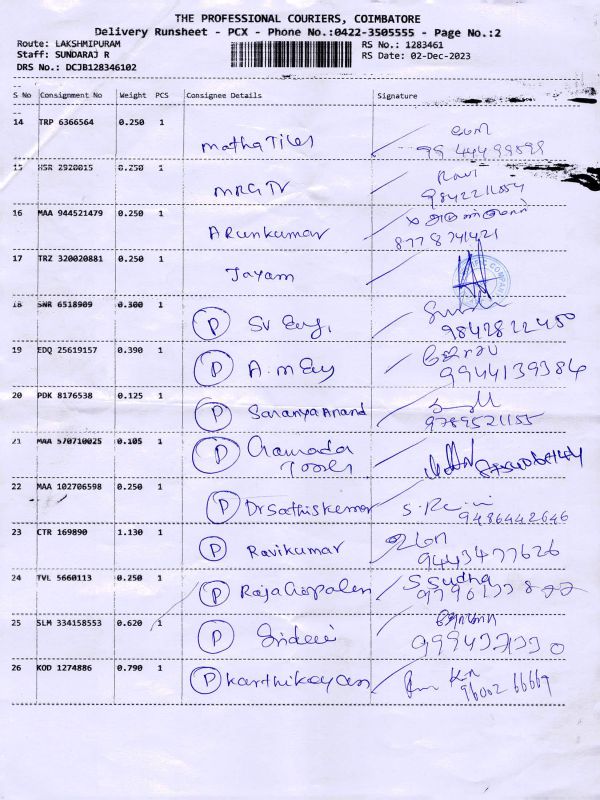 THE PROFESSIONAL COURIERS, COIMBATORE
Delivery Runsheet - PCX - Phone No.:0422-3505555 - Page No.:2
Route: LAKSHMIPURAM RS No.: 1283461
Staff: SUNDARAJ R RS Date: 02-Dec-2023
DRS No.: DCJB128346102
S No Consignment No Weight PCS Consignee Details Signature
14 TRP 6366564 0.250 1
Matha Tiles
15 HSR 2920015 0.250 1 Ravi
MRGTV 9842211554
16 MAA 944521479 0.250 1
ARunkumar 8778741421
17 TRZ 320020881 0.250 1
Jayam
18 SNR 6518909 0.300 1
P SV Eng, 9842822450
19 EDQ 25619157 0.390 1
P A.M Eng 9944139384
20 PDK 8176538 0.125 1
P Saranya Anand 9789521155
21 MAA 570710025 0.105 1
P
Tools
22 MAA 102706598 0.250 1
P Dr Sathiskumar S.
9486442646
23 CTR 169890 1.130 1
P Ravikumar 9443477626
24 TVL 5660113 0.250 1 S Sudha
P RajaGopalan
25 SLM 334158553 0.620 1
P Sridevi
26 KOD 1274886 0.790 1
P Karthikayan 96002 66669